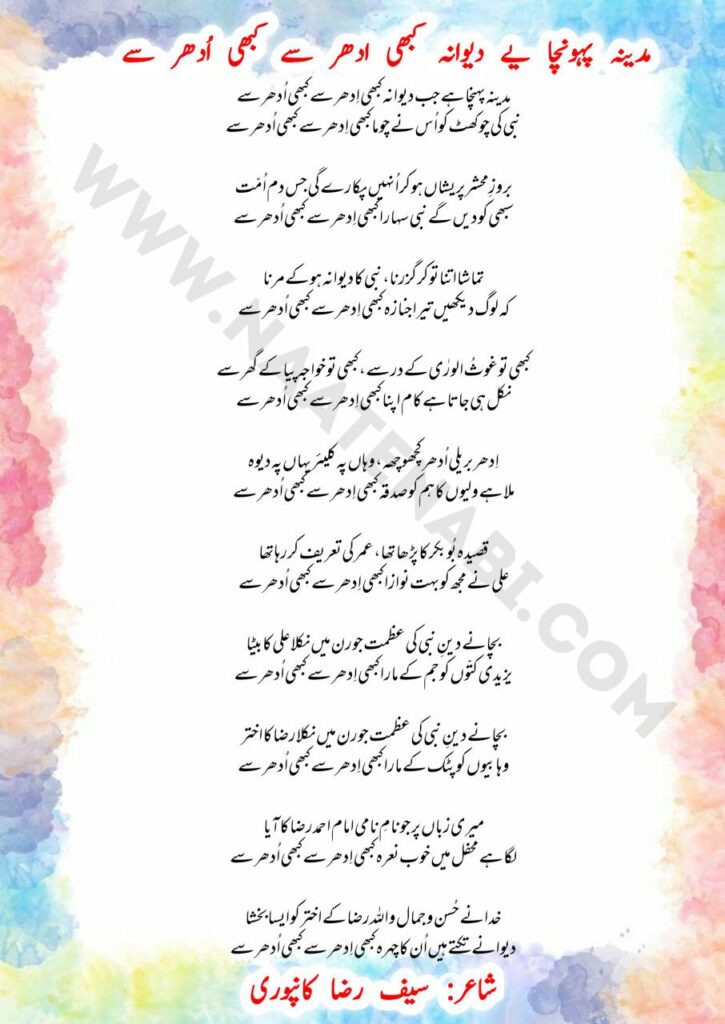 مدینہ پہونچا یے دیوانہ کبھی ادھر سے کبھی اُدھر سے
مدینہ پہنچا ہے جب دیوانہ کبھی اِدھر سے کبھی اُدھر سے
نبی کی چوکھٹ کو اُس نے چوما کبھی اِدھر سے کبھی اُدھر سے
بروزِ محشر پریشاں ہو کر اُنہیں پکارے گی جس دم اُمّت
سبھی کو دیں گے نبی سہارا کبھی اِدھر سے کبھی اُدھر سے
تماشا اتنا تو کر گزرنا، نبی کا دیوانہ ہو کے مرنا
کہ لوگ دیکھیں تیرا جنازہ کبھی اِدھر سے کبھی اُدھر سے
کبھی تو غوثُ الورٰی کے در سے، کبھی تو خواجہ پیا کے گھر سے
نکل ہی جاتا ہے کام اپنا کبھی اِدھر سے کبھی اُدھر سے
اِدھر بریلی اُدھر کچھوچھہ، وہاں پہ کلیئر یہاں پہ دیوہ
ملا ہے ولیوں کا ہم کو صدقہ کبھی اِدھر سے کبھی اُدھر سے
قصیدہ بُو بکر کا پڑھا تھا، عمر کی تعریف کر رہا تھا
علی نے مجھ کو بہت نوازا کبھی اِدھر سے کبھی اُدھر سے
بچانے دینِ نبی کی عظمت جو رن میں نکلا علی کا بیٹا
یزیدی کتّوں کو جم کے مارا کبھی اِدھر سے کبھی اُدھر سے
بچانے دینِ نبی کی عظمت جو رن میں نکلا رضا کا اختر
وہابیوں کو پٹک کے مارا کبھی اِدھر سے کبھی اُدھر سے
میری زباں پر جو نامِ نامی امام احمد رضا کا آیا
لگا ہے محفل میں خوب نعرہ کبھی اِدھر سے کبھی اُدھر سے
خدا نے حُسن و جمال واللہ رضا کے اختر کو ایسا بخشا
دیوانے تکتے ہیں اُن کا چہرہ کبھی اِدھر سے کبھی اُدھر سے
شاعر: سیف رضا کانپوری
WWW.NAATENABI.COM